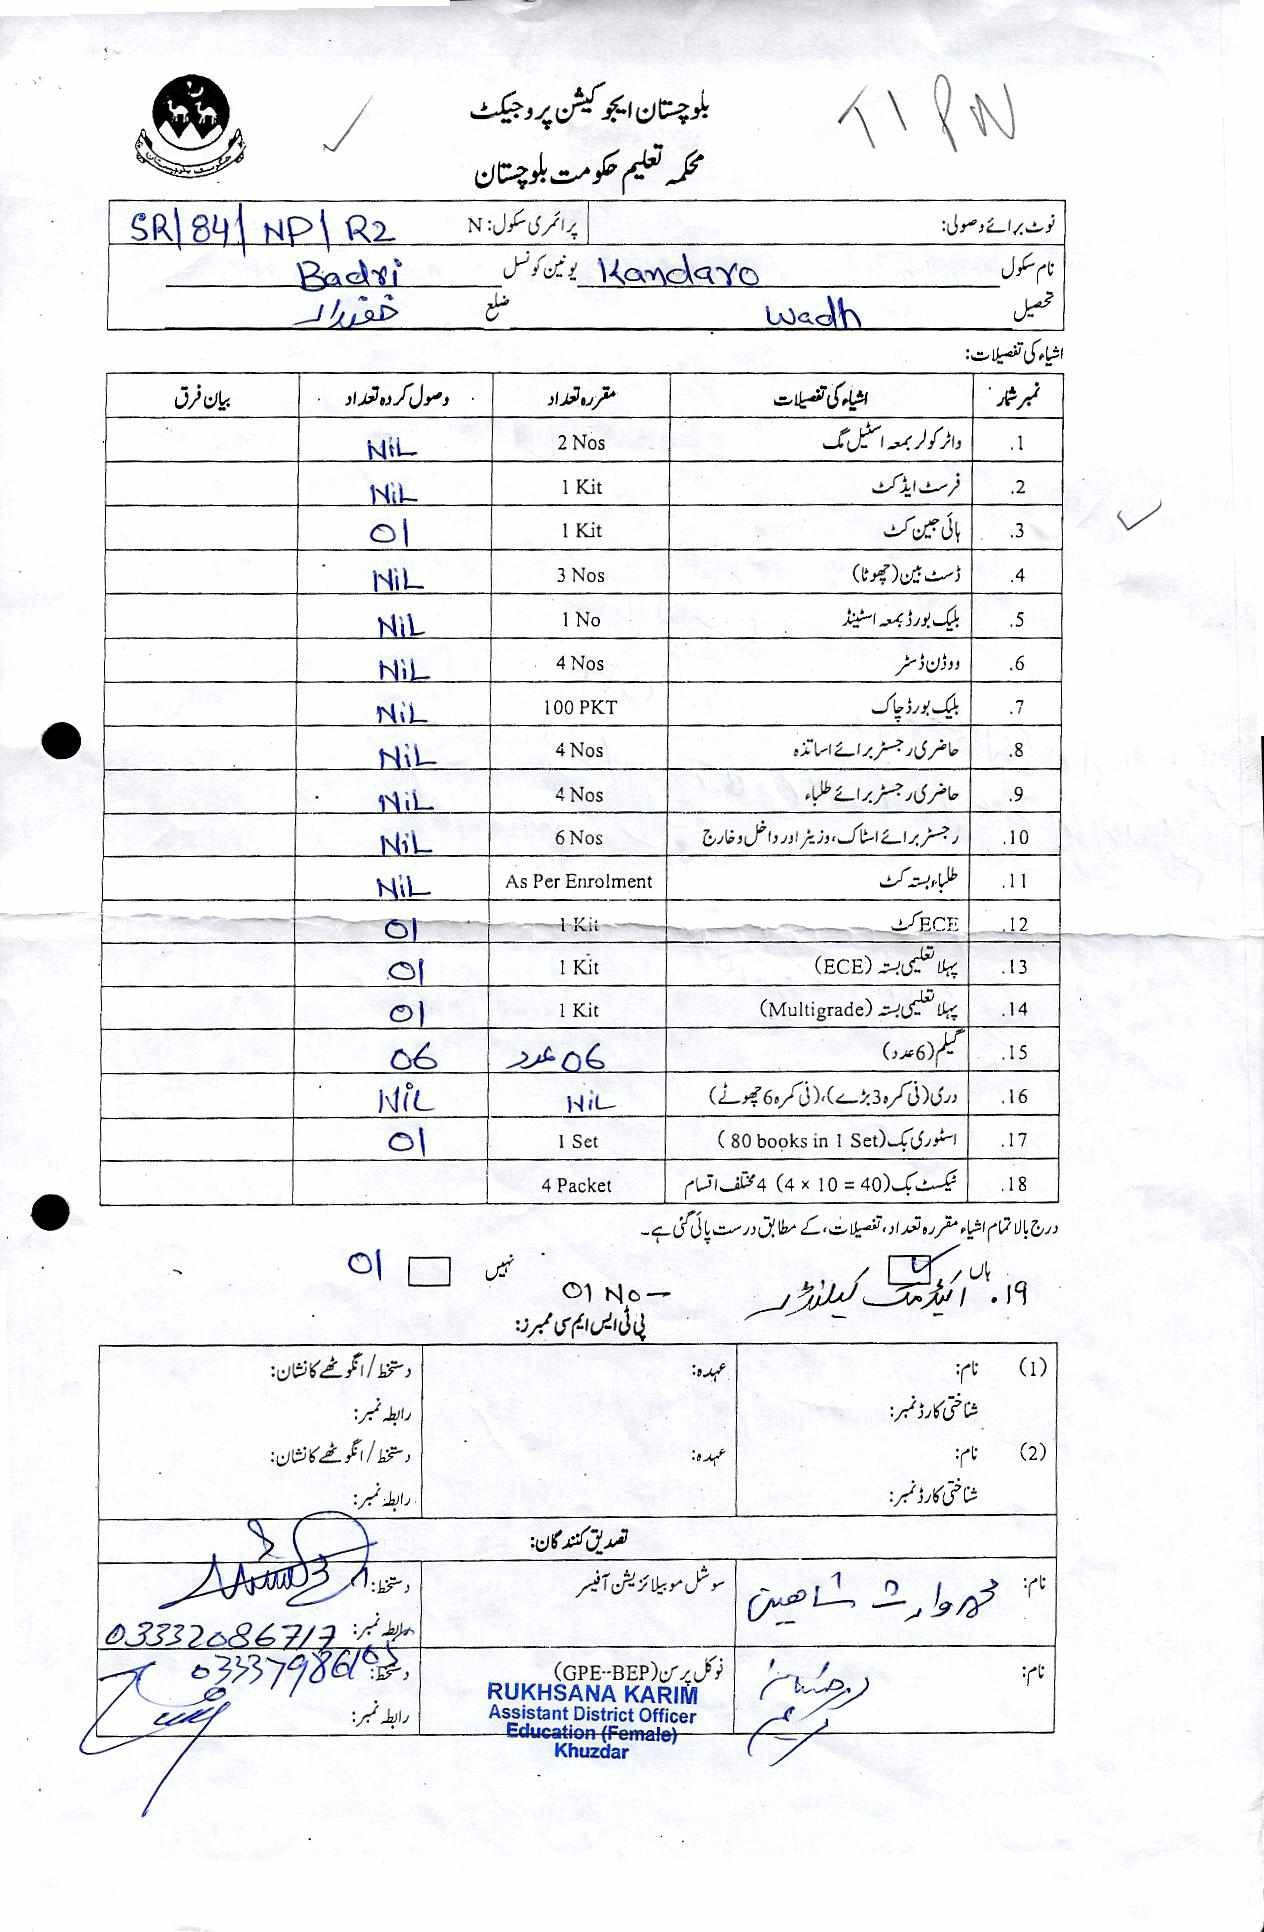 بلوچستان ایجوکیشن پروجیکٹ
TIPN
محکمہ تعلیم حکومت بلوچستان
نوٹ برائے وصولی: پرائمری سکول: N SR/84/NP/R2
نام سکول Kandaro یونین کونسل Badri
تحصیل Wadh ضلع خضدار
اشیاء کی تفصیلات:
نمبر شمار اشیاء کی تفصیلات مقررہ تعداد وصول کردہ تعداد بیان فرق
1. واٹر کولر بمعہ اسٹیل مگ 2 Nos NiL
2. فرسٹ ایڈ کٹ 1 Kit NiL
3. ہائی جین کٹ 1 Kit 01
4. ڈسٹ بین (چھوٹا) 3 Nos NiL
5. بلیک بورڈ بمعہ اسٹینڈ 1 No NiL
6. ووڈن ڈسٹر 4 Nos NiL
7. بلیک بورڈ چاک 100 PKT NiL
8. حاضری رجسٹر برائے اساتذہ 4 Nos NiL
9. حاضری رجسٹر برائے طلباء 4 Nos NiL
10. رجسٹر برائے اسٹاک، وزیٹر اور داخل و خارج 6 Nos NiL
11. طلباء بستہ کٹ As Per Enrolment NiL
12. ECE کٹ 1 Kit 01
13. پہلا تعلیمی بستہ (ECE) 1 Kit 01
14. پہلا تعلیمی بستہ (Multigrade) 1 Kit 01
15. گلیم (6 عدد) 06 عدد 06
16. دری (فی کمرہ 3 بڑے)، (فی کمرہ 6 چھوٹے) NiL NiL
17. اسٹوری بک (80 books in 1 Set) 1 Set 01
18. ٹیکسٹ بک (4 × 10 = 40) 4 مختلف اقسام 4 Packet
درج بالا تمام اشیاء مقررہ تعداد، تفصیلات، کے مطابق درست پائی گئی ہے۔
ہاں نہیں 01
۱۹. اکیڈمک کیلنڈر 01 No
پی ٹی ایس ایم سی ممبرز:
(1) نام: عہدہ: دستخط/انگوٹھے کا نشان:
شناختی کارڈ نمبر: رابطہ نمبر:
(2) نام: عہدہ: دستخط/انگوٹھے کا نشان:
شناختی کارڈ نمبر: رابطہ نمبر:
تصدیق کنندگان:
نام: محمد وارث شاھین سوشل موبیلائزیشن آفیسر دستخط:
رابطہ نمبر: 03332086717
نام: رخسانہ کریم فوکل پرسن (GPE-BEP) دستخط: 03337986105
RUKHSANA KARIM
Assistant District Officer رابطہ نمبر:
Education (Female)
Khuzdar